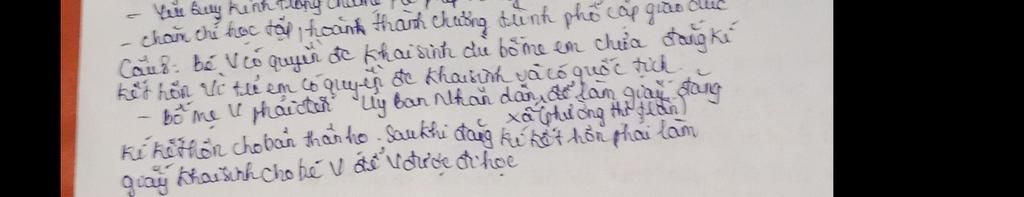 - Yêu quý kính trọng
- chăm chỉ học tập, hoành thành chương trình phổ cập giáo dục
Câu 8: bé V có quyền đc khai sinh dù bố mẹ em chưa đăng kí
kết hôn vì trẻ em có quyền đc khai sinh và có quốc tịch
- Bố mẹ V phải đến Uỷ ban Nhân dân để làm giấy đăng
xã (phường thị trấn)
kí kết hôn cho bản thân họ. Sau khi đăng kí kết hôn phải làm
giấy khai sinh cho bé V để V được đi học